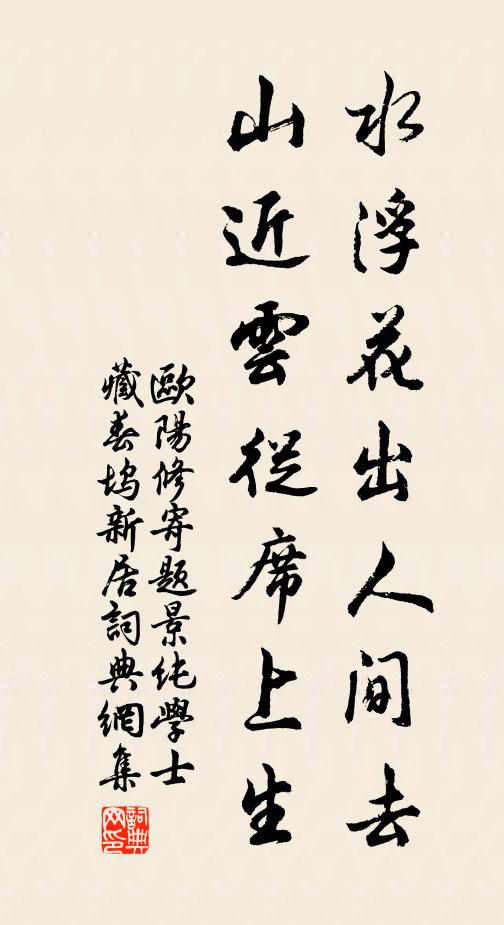 水浮花出人间去
山近雲從席上生
歐陽修寄題景纯學士
藏春塢新居詞典網集
詞典
网印